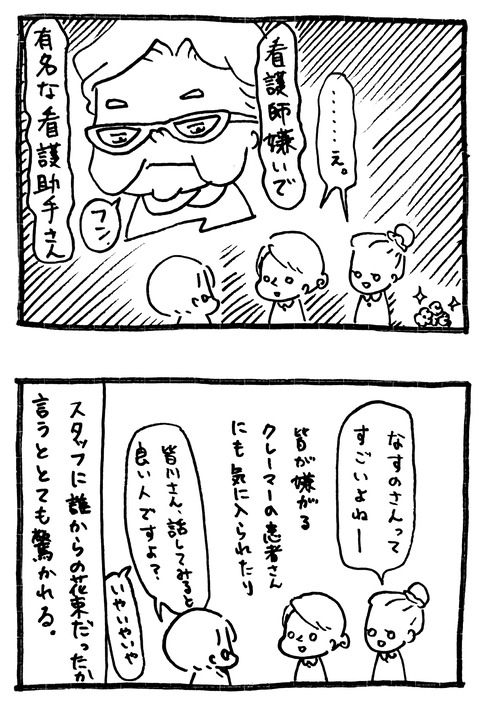 看護師嫌いで
有名な看護助手さん
………え。
フン
なすのさんって
すごいよねー
皆が嫌がる
クレーマーの患者さん
にも気に入られたり
皆川さん、話してみると
良い人ですよ？
いやいやいや
スタッフに誰からの花束だったか
言うととても驚かれる。